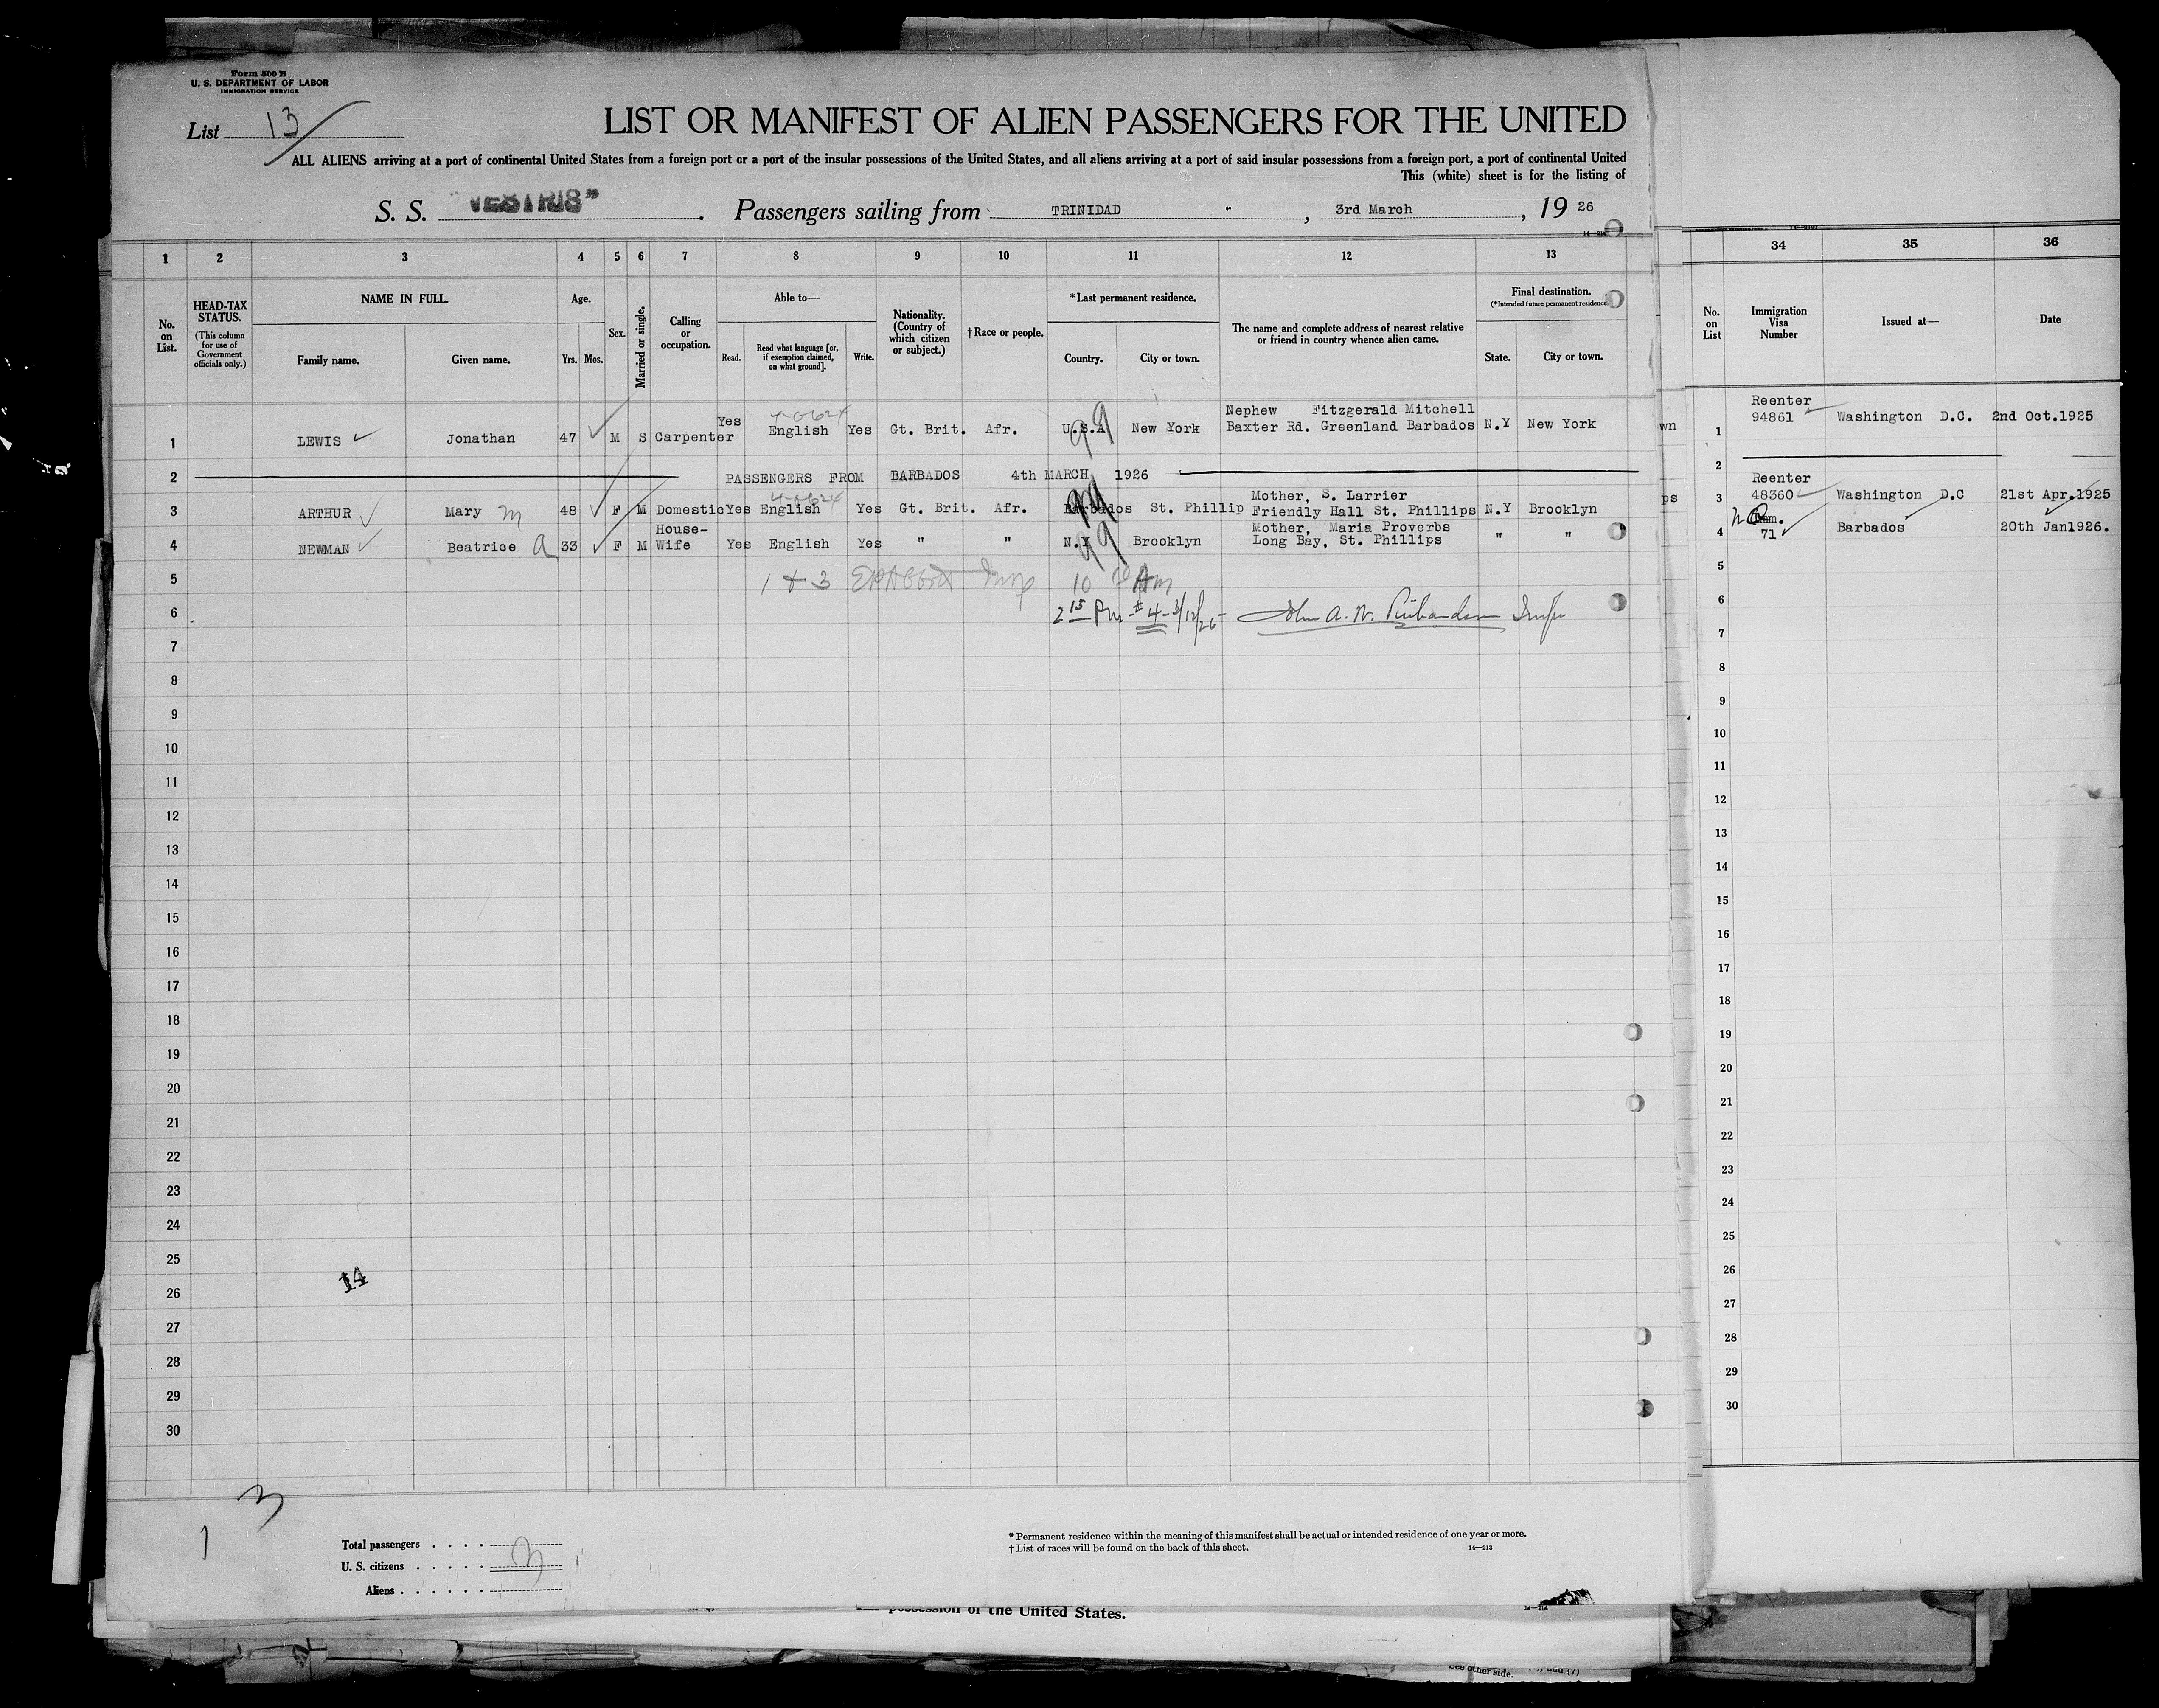 Form 500 B
U. S. DEPARTMENT OF LABOR
IMMIGRATION SERVICE
List 13
LIST OR MANIFEST OF ALIEN PASSENGERS FOR THE UNITED
ALL ALIENS arriving at a port of continental United States from a foreign port or a port of the insular possessions of the United States, and all aliens arriving at a port of said insular possessions from a foreign port, a port of continental United
This (white) sheet is for the listing of
S. S. "VESTRIS" Passengers sailing from TRINIDAD , 3rd March , 19 26
1 2 3 4 5 6 7 8 9 10 11 12 13 34 35 36
No. on List.
HEAD-TAX STATUS.
(This column for use of Government officials only.)
NAME IN FULL.
Family name. Given name.
Age.
Yrs. Mos.
Sex.
Married or single.
Calling or occupation.
Able to—
Read. Read what language [or, if exemption claimed, on what ground]. Write.
Nationality. (Country of which citizen or subject.)
†Race or people.
*Last permanent residence.
Country. City or town.
The name and complete address of nearest relative or friend in country whence alien came.
Final destination.
(*Intended future permanent residence)
State. City or town.
No. on List
Immigration Visa Number
Issued at—
Date
1 LEWIS Jonathan 47 M S Carpenter Yes English Yes Gt. Brit. Afr. U.S.A New York Nephew Fitzgerald Mitchell Baxter Rd. Greenland Barbados N.Y New York wn 1 Reenter 94861 Washington D.C. 2nd Oct.1925
2 PASSENGERS FROM BARBADOS 4th MARCH 1926 2
3 ARTHUR Mary M 48 F M Domestic Yes English Yes Gt. Brit. Afr. Barbados St. Phillip Mother, S. Larrier Friendly Hall St. Phillips N.Y Brooklyn ps 3 Reenter 48360 Washington D.C 21st Apr.1925
4 NEWMAN Beatrice A 33 F M House-Wife Yes English Yes " " N.Y Brooklyn Mother, Maria Proverbs Long Bay, St. Phillips " " 4 Imm. 71 Barbados 20th Jan1926.
5 1 + 3 10 Am 5
6 2 15 Pm #4- 3/12/26 John A. W. Richardson 6
7 7
8 8
9 9
10 10
11 11
12 12
13 13
14 14
15 15
16 16
17 17
18 18
19 19
20 20
21 21
22 22
23 23
24 24
25 25
14
26 26
27 27
28 28
29 29
30 30
3
1
Total passengers . . . .
U. S. citizens . . . . . 3
Aliens . . . . . .
* Permanent residence within the meaning of this manifest shall be actual or intended residence of one year or more.
† List of races will be found on the back of this sheet.
14—213
possession of the United States.
See other side.